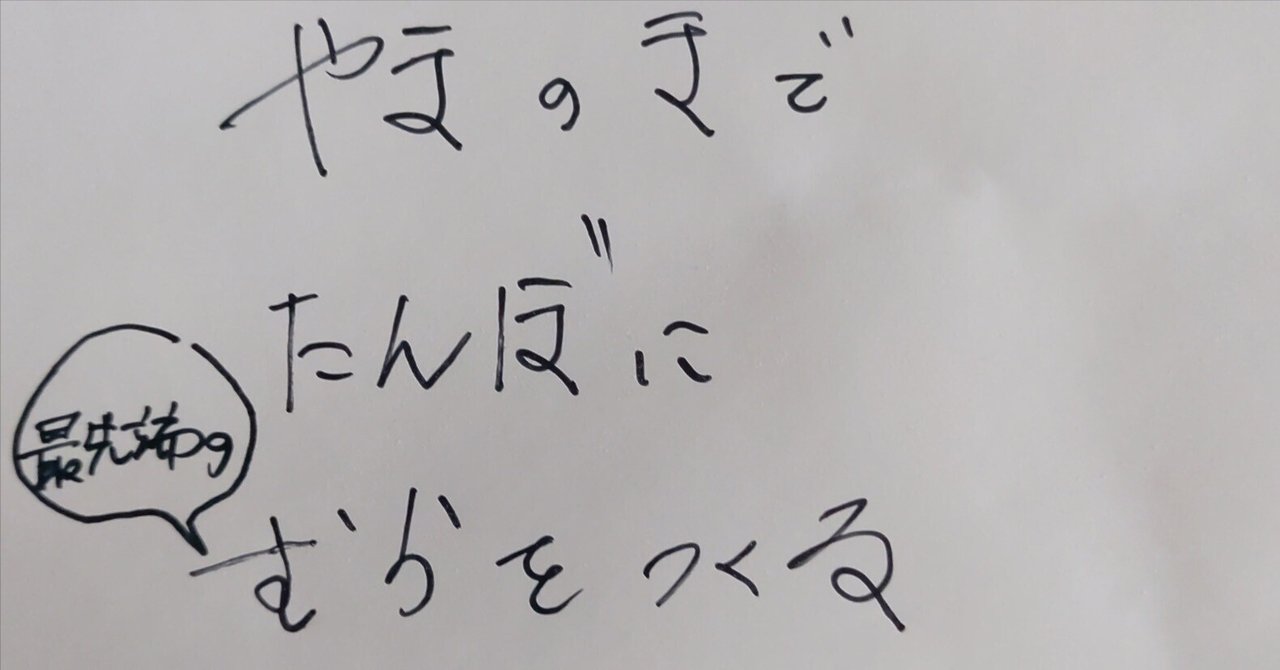 やまのまで
たんぼに
最先端の
むらをつくる